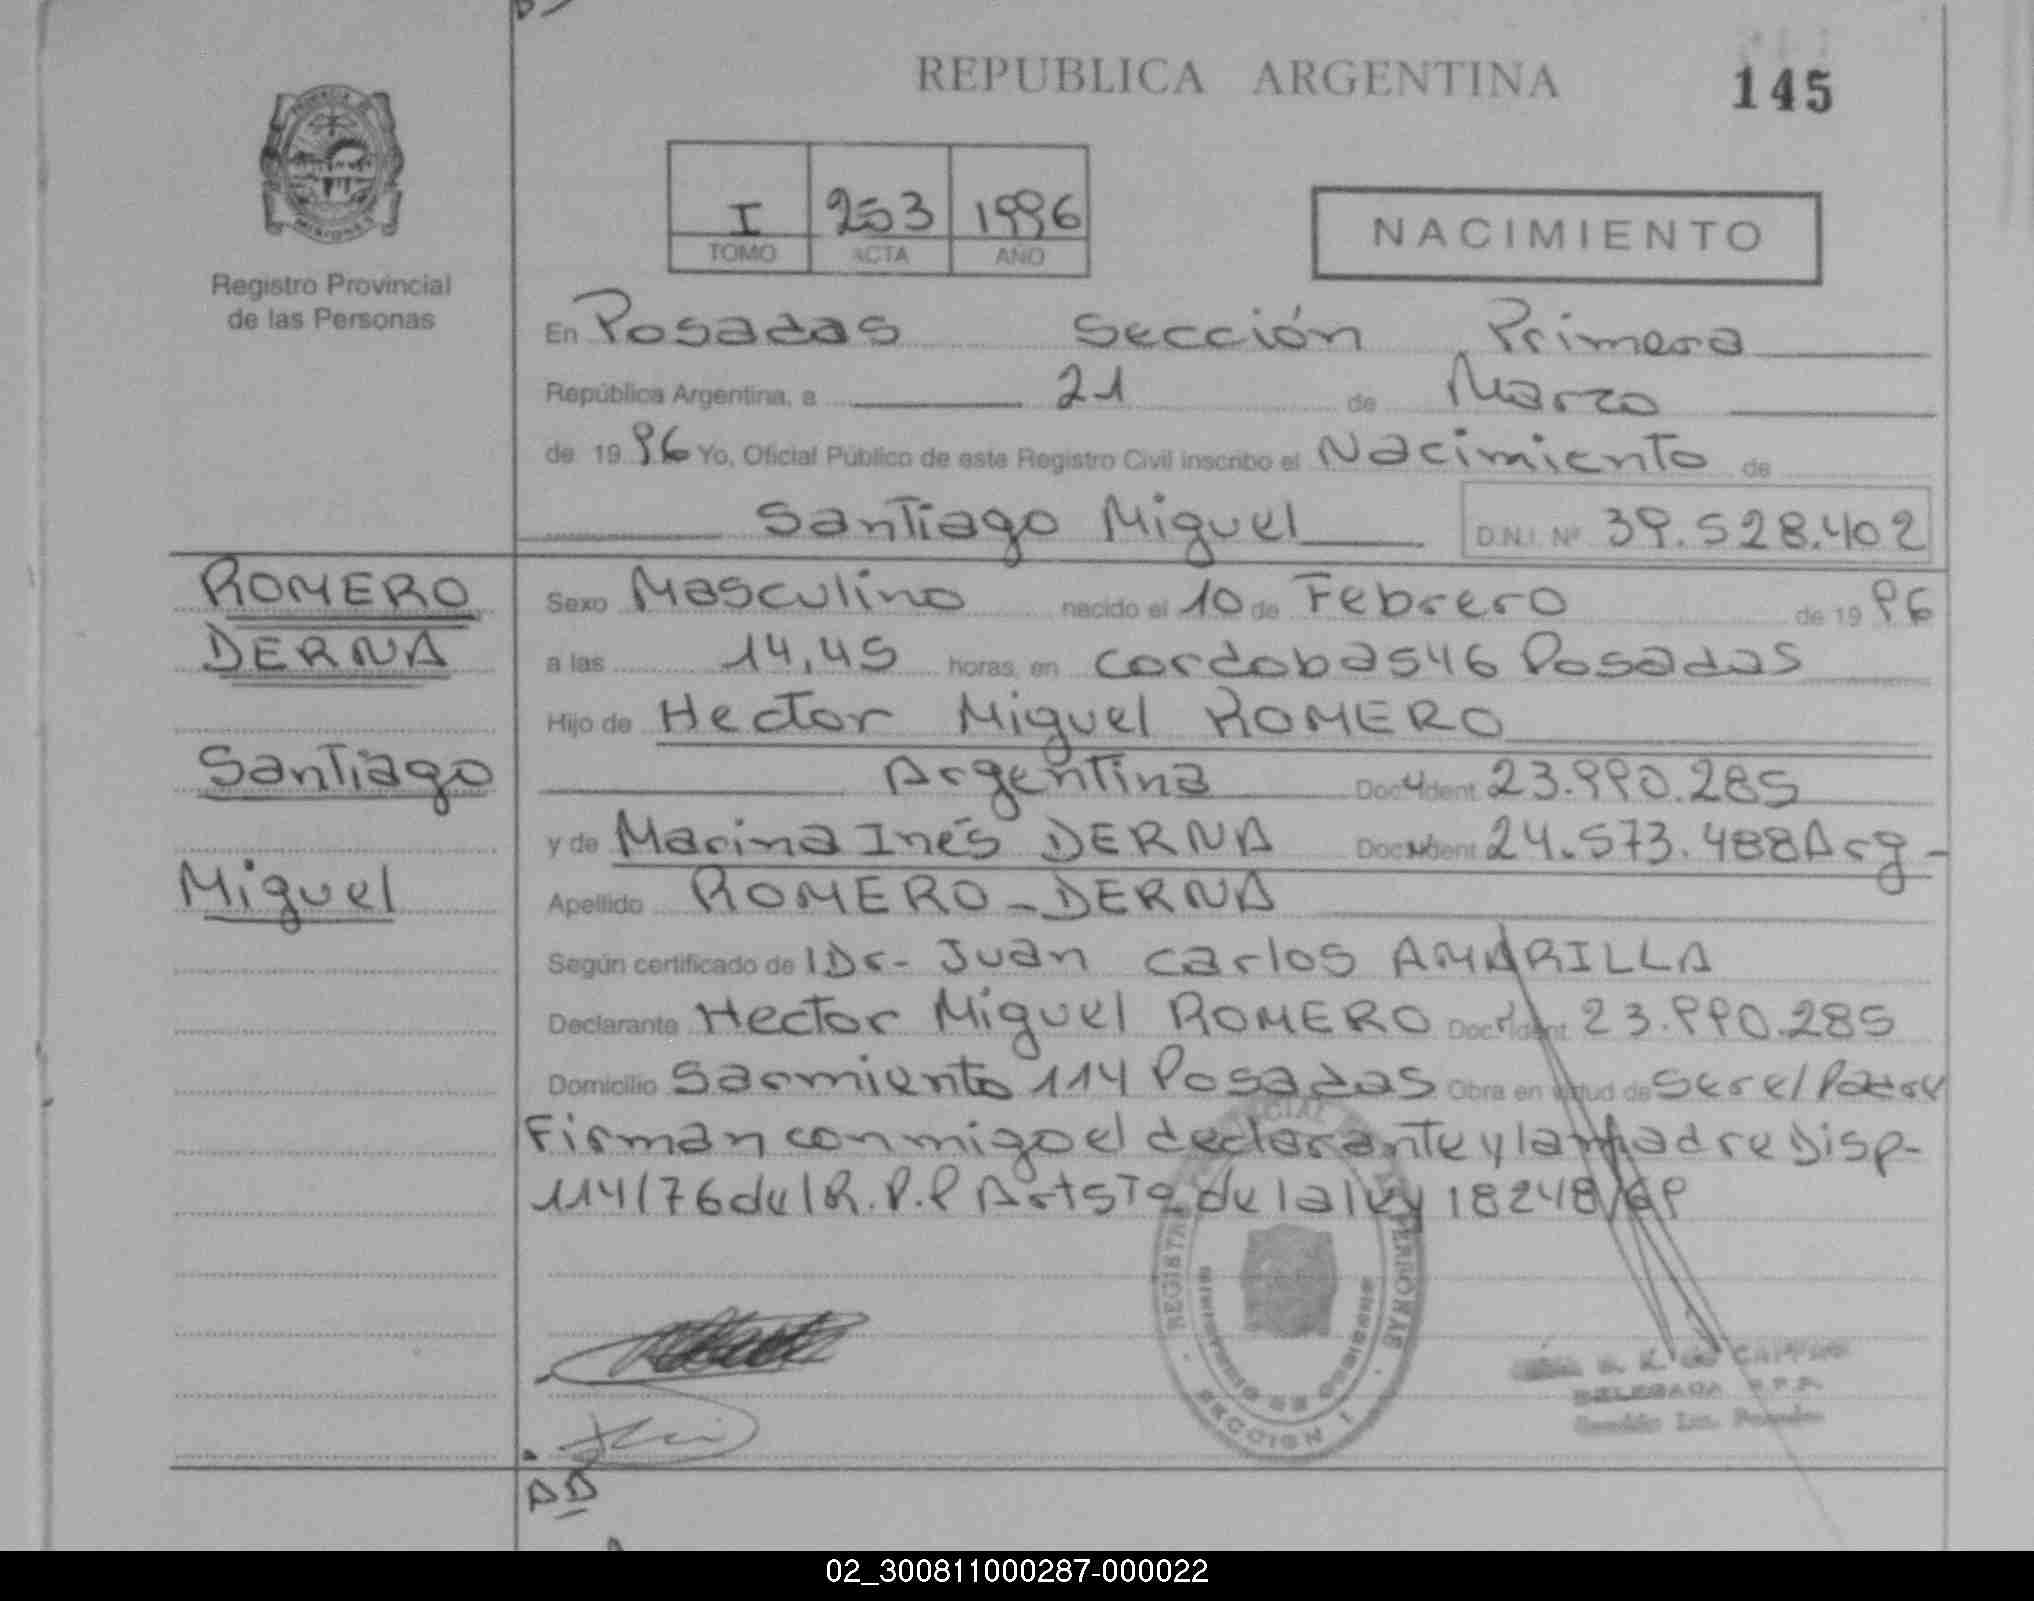 REPUBLICA ARGENTINA
145
I 253 1996
TOMO ACTA AÑO
NACIMIENTO
PROVINCIA DE MISIONES
Registro Provincial
de las Personas
En Posadas Sección Primera
República Argentina, a 21 de Marzo
de 1996 Yo, Oficial Público de este Registro Civil inscribo el Nacimiento de
Santiago Miguel D.N.I. Nº 39.528.402
ROMERO
DERNA
Santiago
Miguel
Sexo Masculino nacido el 10 de Febrero de 1996
a las 14,45 horas, en Cordoba 546 Posadas
Hijo de Hector Miguel ROMERO
Argentina Doc. Ident. 23.990.285
y de Marina Inés DERNA Doc. Ident. 24.573.488 Arg-
Apellido ROMERO-DERNA
Según certificado de Dr- Juan Carlos AMARILLA
Declarante Hector Miguel ROMERO Doc. Ident. 23.990.285
Domicilio Sarmiento 114 Posadas Obra en virtud de Ser el Padre
Firman conmigo el declarante y la madre Disp-
114/76 del R.P.P Art 5To de la ley 18248/69
SECCION 1
DELEGADA R.P.P.
02_300811000287-000022